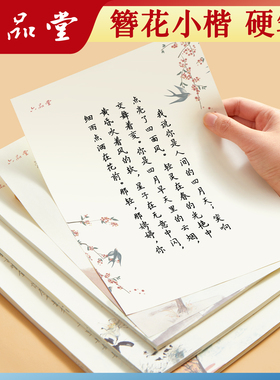 品堂
簪花小楷 硬
六品堂
我说你是人间的四月天，笑响
点亮了四面风。轻灵在春的光艳中
交舞着变。你是四月早天里的云烟，
黄昏吹着风的软，星子在无意中闪，
细雨点洒在花前。那轻，那娉婷，你
六品堂